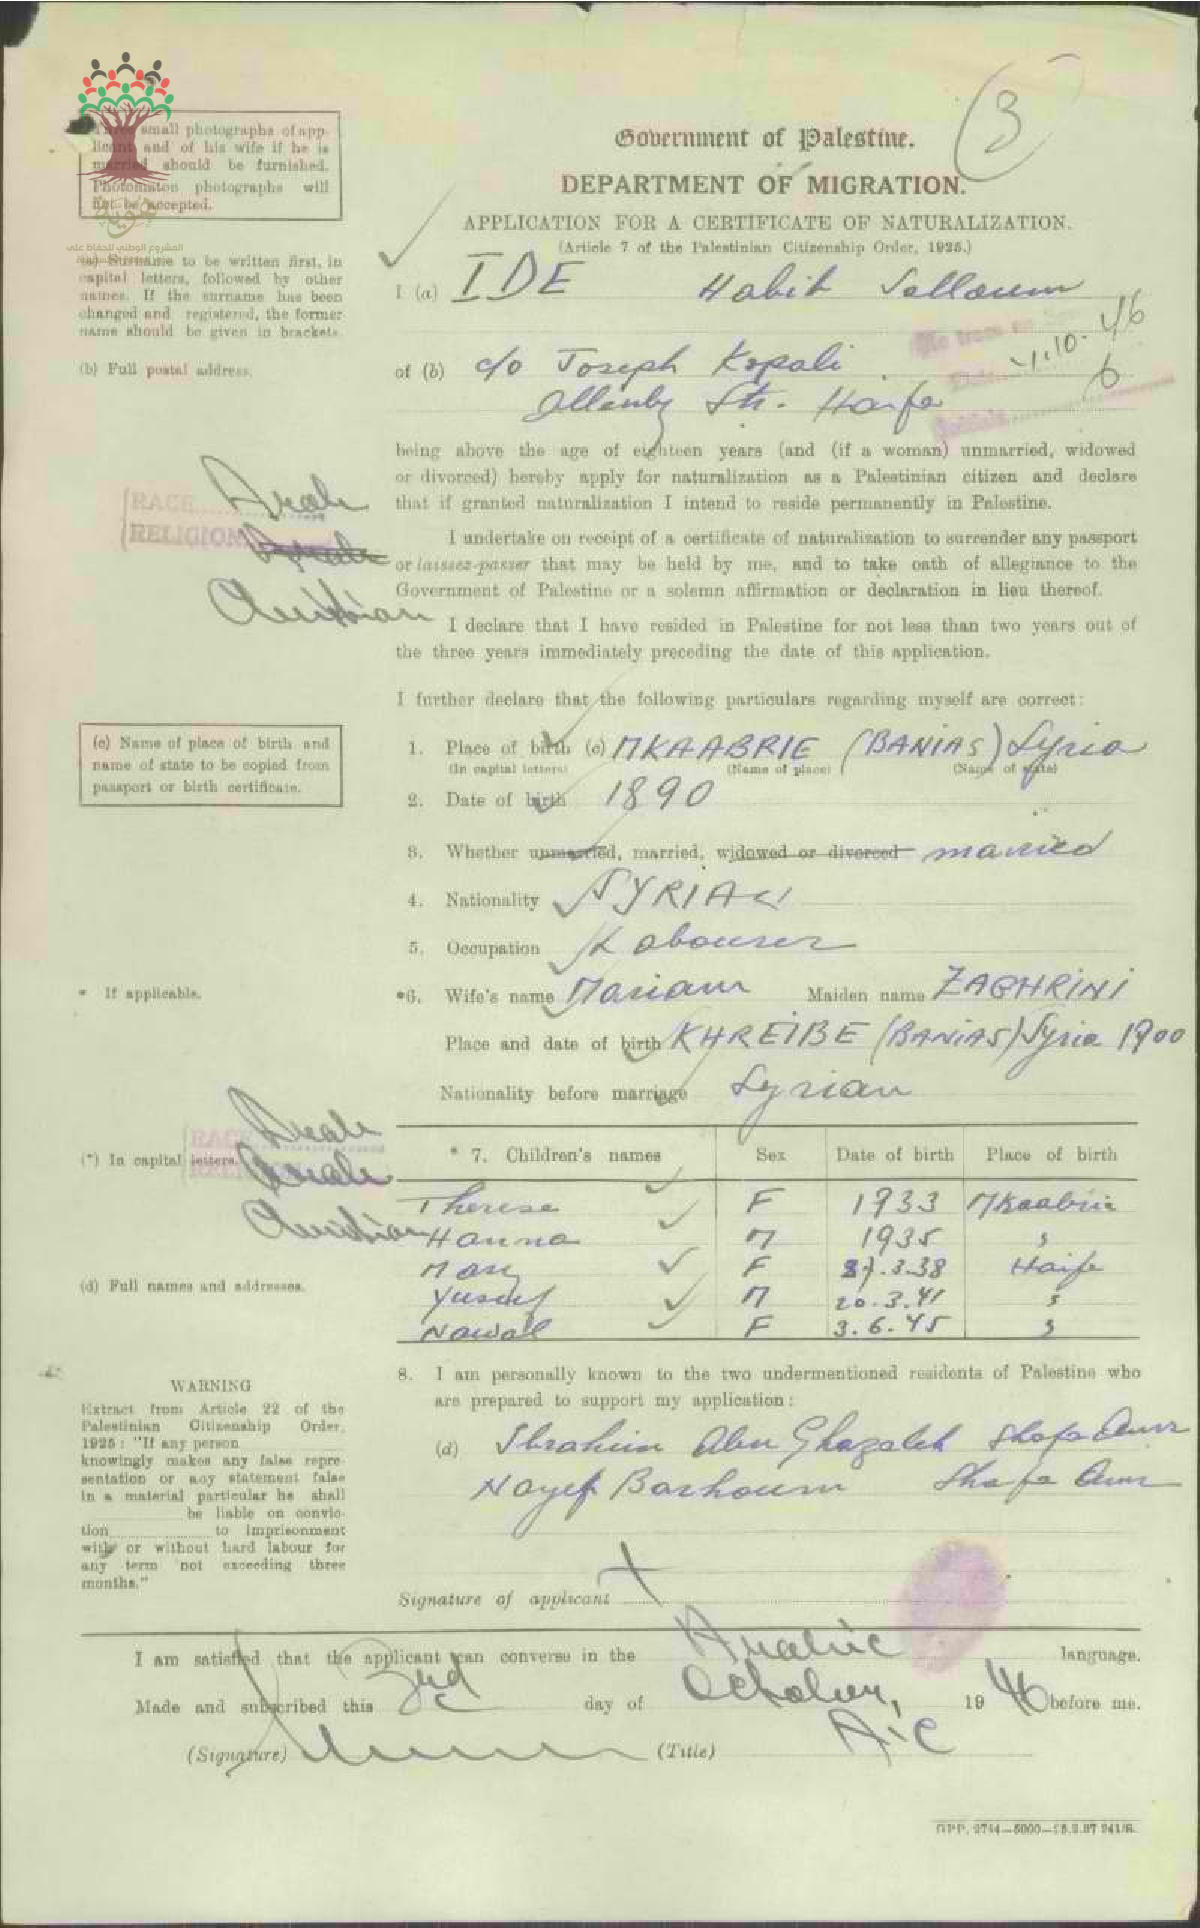 3
Three small photographs of app-
licant and of his wife if he is
married should be furnished.
Photomaton photographs will
not be accepted.
هوية
المشروع الوطني للحفاظ على
Government of Palestine.
DEPARTMENT OF MIGRATION.
APPLICATION FOR A CERTIFICATE OF NATURALIZATION.
(Article 7 of the Palestinian Citizenship Order, 1925.)
(a) Surname to be written first, in
capital letters, followed by other
names. If the surname has been
changed and registered, the former
name should be given in brackets.
I (a) IDE Habib Salloum
No trace
Date 1.10.46
(b) Full postal address.
of (b) c/o Joseph Kopali
Allenby Str. Haifa
being above the age of eighteen years (and (if a woman) unmarried, widowed
or divorced) hereby apply for naturalization as a Palestinian citizen and declare
that if granted naturalization I intend to reside permanently in Palestine.
RACE Arab
RELIGION Arab
Christian
I undertake on receipt of a certificate of naturalization to surrender any passport
or laissez-passer that may be held by me, and to take oath of allegiance to the
Government of Palestine or a solemn affirmation or declaration in lieu thereof.
I declare that I have resided in Palestine for not less than two years out of
the three years immediately preceding the date of this application.
I further declare that the following particulars regarding myself are correct:
(c) Name of place of birth and
name of state to be copied from
passport or birth certificate.
1. Place of birth (c) MKAABRIE (BANIAS) Syria
(In capital letters) (Name of place) (Name of state)
2. Date of birth 1890
3. Whether unmarried, married, widowed or divorced married
4. Nationality SYRIAN
5. Occupation Labourer
* If applicable.
*6. Wife's name Mariam Maiden name ZAGHRINI
Place and date of birth KHREIBE (BANIAS) Syria 1900
Nationality before marriage Syrian
RACE Arab
Arab
Christian
(*) In capital letters.
* 7. Children's names Sex Date of birth Place of birth
Therese F 1933 MKaabrie
Hanna M 1935 "
Mary F 27.3.38 Haifa
Yusuf M 20.3.41 "
Nawal F 3.6.45 "
(d) Full names and addresses.
8. I am personally known to the two undermentioned residents of Palestine who
are prepared to support my application:
(d) Ibrahim Abu Ghazaleh Shafa Amr
Nayef Barhoum Shafa Amr
WARNING
Extract from Article 22 of the
Palestinian Citizenship Order,
1925: "If any person
knowingly makes any false repre-
sentation or any statement false
in a material particular he shall
be liable on convic-
tion to imprisonment
with or without hard labour for
any term not exceeding three
months."
Signature of applicant
I am satisfied that the applicant can converse in the Arabic language.
Made and subscribed this 3rd day of October, 1946 before me.
(Signature) (Title) A/C
GPP. 9744—5000—25.2.37 241/R.